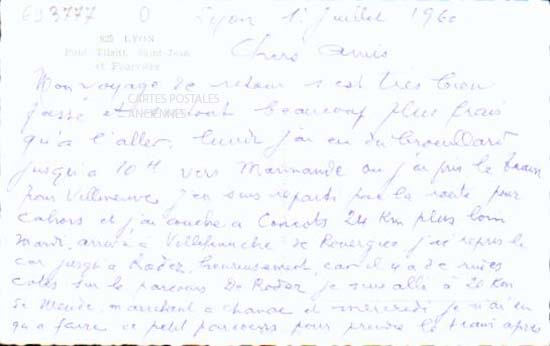 693777 0 Lyon 1 juillet 1960
825 LYON
Pont Tilsitt, Saint-Jean
et Fourvière
Chers Amis
Mon voyage de retour s'est très bien
passé et surtout beaucoup plus frais
CARTES POSTALES
ANCIENNES
qu'à l'aller. lundi j'ai eu du brouillard
jusqu'à 10 H vers Marmande où j'ai pris le train
pour Villeneuve j'en suis reparti par la route pour
Cahors et j'ai couché à Concots 24 Km plus loin
Mardi, arrivé à Villefranche de Rouergue j'ai repris le
car jusqu'à Rodez, heureusement, car il y a de rudes
côtes sur le parcours De Rodez je suis allé à 20 Km
de Mende, marchant à chanac et mercredi je n'ai eu
qu'à faire ce petit parcours pour prendre le train après